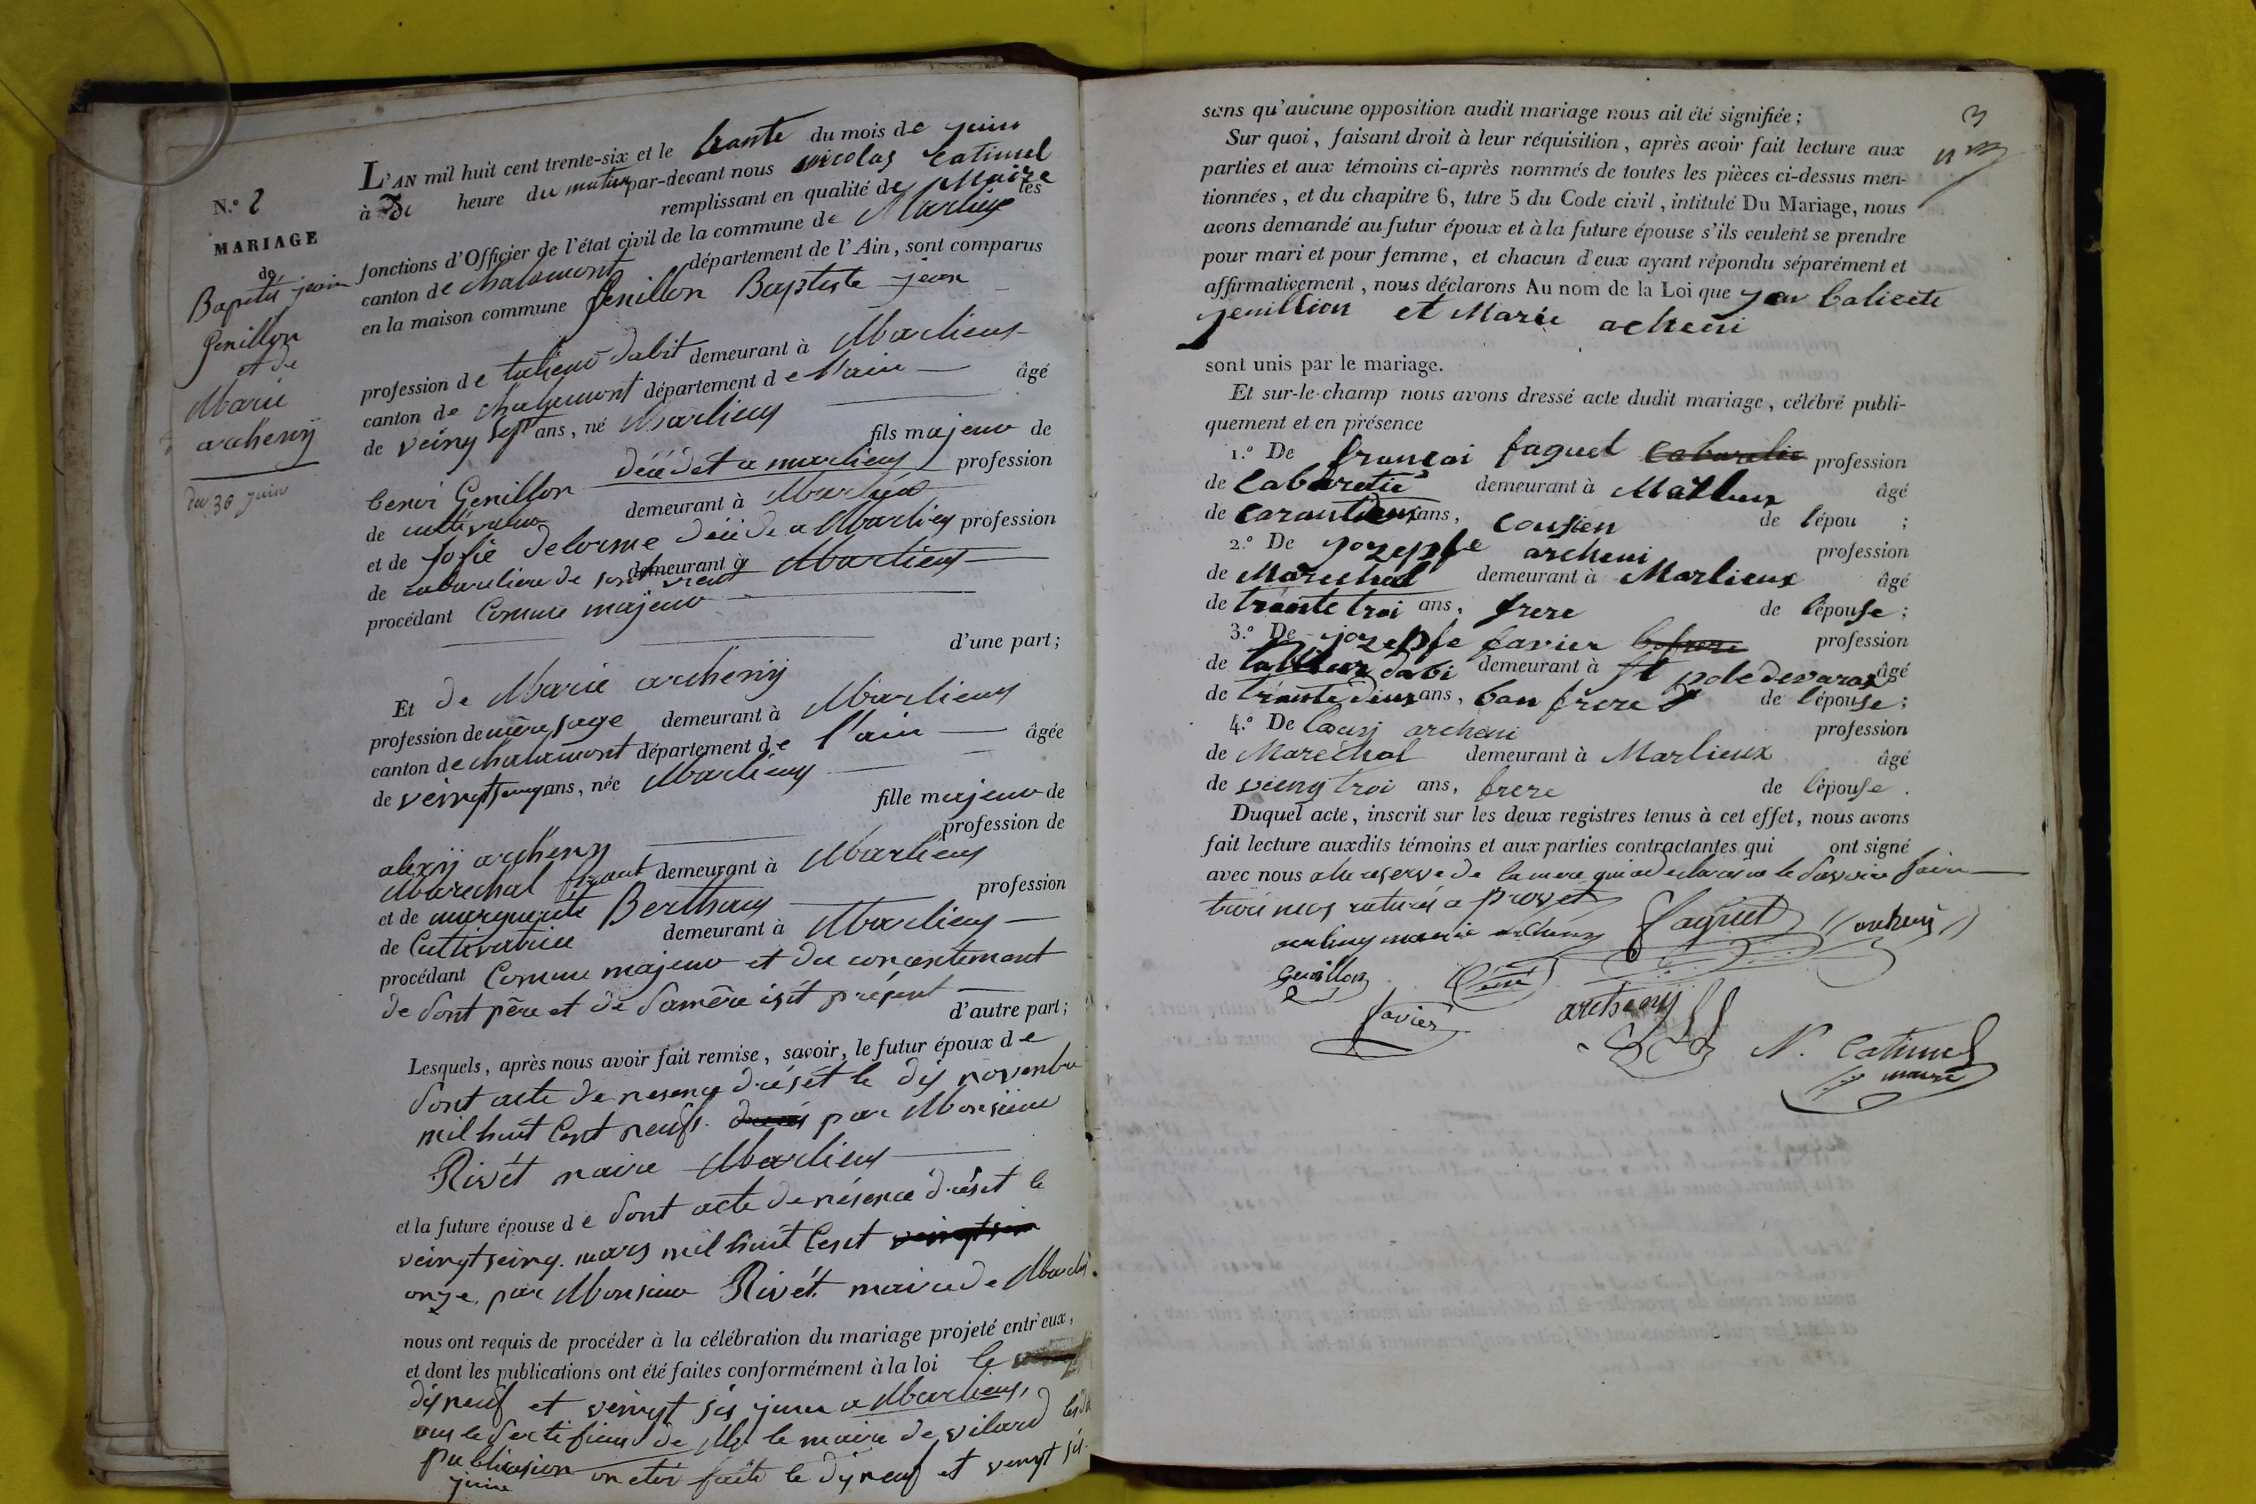 N.º 2
MARIAGE
de
Baptiste jean
Genillon
et de
Marie
archenÿ
du 30 juin
L'AN mil huit cent trente-six et le trante du mois de juin
à Di heure du matin par-devant nous nicolas Catimel
remplissant en qualité de Maire les
fonctions d'Officier de l'état civil de la commune de Marlieux
canton de chalamont département de l'Ain, sont comparus
en la maison commune Genillon Baptiste jean
profession de talieur dabit demeurant à Marlieux
canton de chalamont département de l'ain âgé
de veing sept ans, né Marlieux
fils majeur de
Genillon décédet a marlieux profession
de cultivateur demeurant à Marlieux
et de Sofie delorme décéde a Marlieux profession
de demeurant à Marlieux
procédant Comme majeur
d'une part;
Et de Marie archenÿ
profession de mère sage demeurant à Marlieux
canton de chalamont département de l'ain âgée
de veingt seing ans, née Marlieux
fille majeur de
alexÿ archeny profession de
Marechal demeurant à Marlieux
et de marguerite Berthaux profession
de Cultivatrice demeurant à Marlieux
procédant Comme majeur et du consentemant
de sont père et de samêre isit présent
d'autre part;
Lesquels, après nous avoir fait remise, savoir, le futur époux de
sont acte de nesence d'rését le dix novembre
mil huit Cent neuf par Monsieur
Rivét maire Marlieux
et la future épouse de sont acte de nésence d'réset le
veingt seing mars mil huit Cent
onze, par Monsieur Rivét maire de
nous ont requis de procéder à la célébration du mariage projeté entr'eux,
et dont les publications ont été faites conformément à la loi le
dix neuf et veingt six juin a Marlieux,
le sertificus de Mr le maire de vilard les
publicasion on etéz faite le dixneuf et vengt six
juin
3
sans qu'aucune opposition audit mariage nous ait été signifiée;
Sur quoi, faisant droit à leur réquisition, après avoir fait lecture aux
parties et aux témoins ci-après nommés de toutes les pièces ci-dessus men-
tionnées, et du chapitre 6, titre 5 du Code civil, intitulé Du Mariage, nous
avons demandé au futur époux et à la future épouse s'ils veulent se prendre
pour mari et pour femme, et chacun d'eux ayant répondu séparément et
affirmativement, nous déclarons Au nom de la Loi que jan batiecte
jenillion et Marie acheni
sont unis par le mariage.
Et sur-le-champ nous avons dressé acte dudit mariage, célébré publi-
quement et en présence
1.º De françoi faguet profession
de Cabaretié demeurant à Marlieux âgé
de carantdeux ans, cousien de l'épou ;
2.º De jozepfe archeni profession
de Marechal demeurant à Marlieux âgé
de trante troi ans, frere de l'épouse;
3.º De jozepfe favier profession
de tallieur dabi demeurant à St pol de varax âgé
de trante deux ans, bau frere de l'épouse;
4.º De louij archeni profession
de Marechal demeurant à Marlieux âgé
de veing troi ans, frere de l'épouse.
Duquel acte, inscrit sur les deux registres tenus à cet effet, nous avons
fait lecture auxdits témoins et aux parties contractantes qui ont signé
avec nous a la reserve de la mere qui a declaré ne le savoire faire
trois mos raturés a provet
marie archeny faguet archenÿ
Genillon
favier archeny
N. Catimel
maire